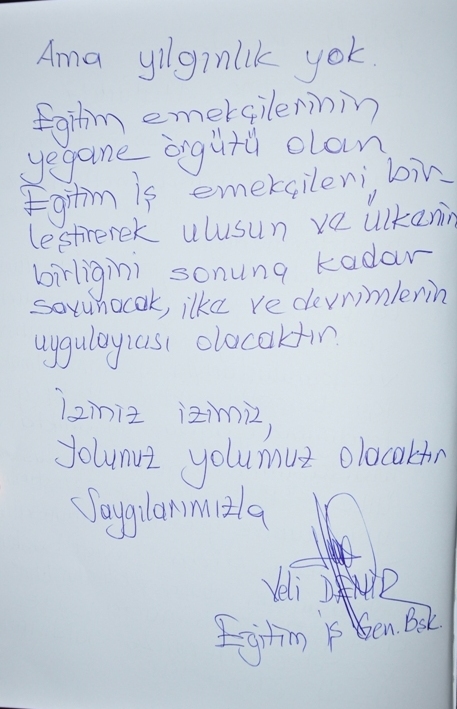 Ama yılgınlık yok.
Eğitim emekçilerinin
yegane örgütü olan
Eğitim İş emekçileri, bir-
leştirerek ulusun ve ülkenin
birliğini sonuna kadar
savunacak, ilke ve devrimlerin
uygulayıcısı olacaktır.
İziniz izimiz,
Yolunuz yolumuz olacaktır
Saygılarımızla
Veli DEMİR
Eğitim İş Gen. Bşk.